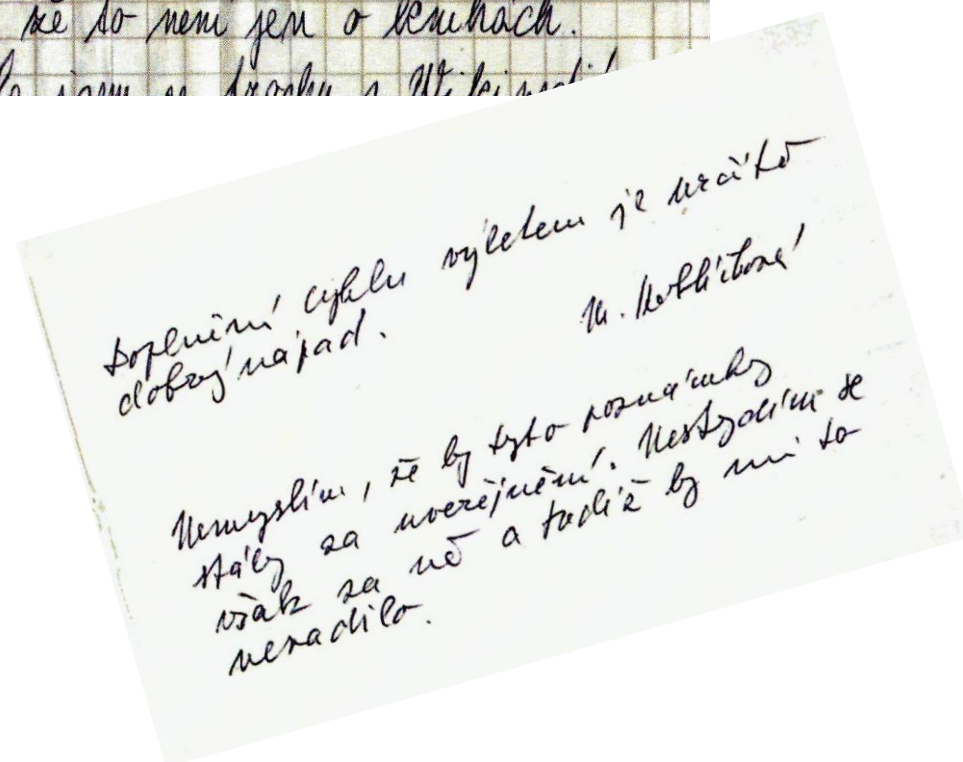 že to není jen o knihách.
jsem se trochu s
Doplnění cyklu výletem je určitě
dobrý nápad.
M.
Nemyslím, že by tyto poznámky
stály za uveřejnění. Nestydím se
však za ně a tudíž by mi to
nevadilo.